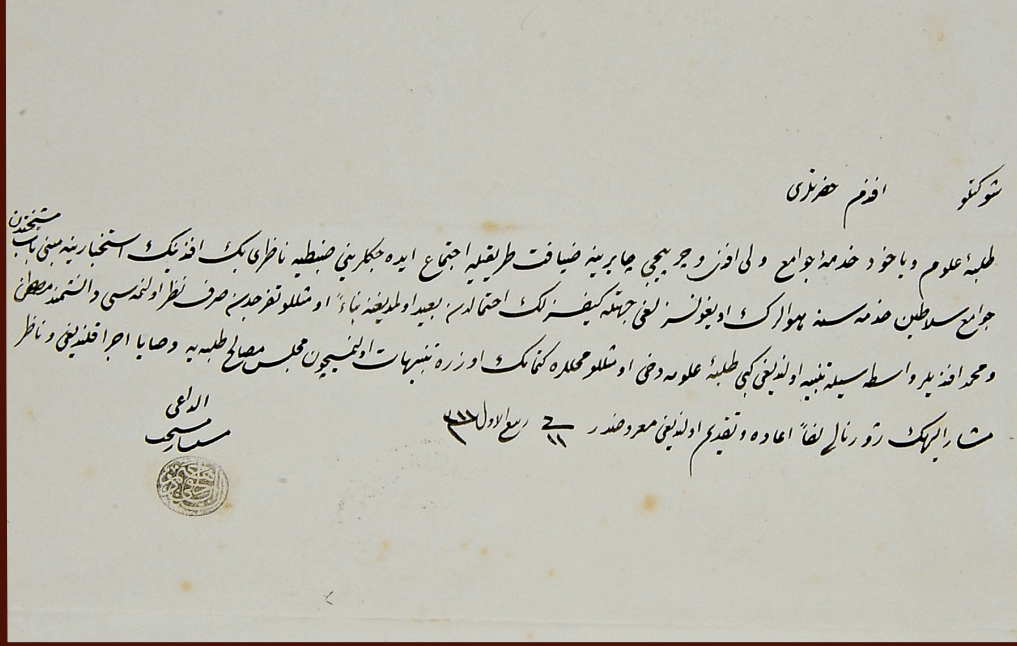 شوكتلو افندم حضرتلرى
طلبۀ علوم و ياخود خدمۀ جوامع ولى افندى و چرپيجى چايرينه ضيافت طريقيله اجتماع ايده جكلرينى ضبطيه ناظرى بك افندينك استخبارينه مبنى باب مشيختدن
جوامع سلاطين خدمه سنه بهوالرك اديغونسزلغى جهتله كيفسزلك احتمالدن بعيد اولمديغنه بناءً او مثللو تفرجدن صرف نظر اولنمه سى دانشمند مصطفى
و محمد افنديلر واسطه سيله تنبيه اولنديغى كبى طلبۀ علومه دخى او مثللو محللره كتمامك اوزره تنبيهات اولنمسيچون مجلس مصالح طلبه يه وصايا اجرا قلنديغى و ناظر
مشار اليهك ژورنالى لفاً اعاده و تقديم اولنديغى معروضدر فى ١١ ربيع الاول
الداعى